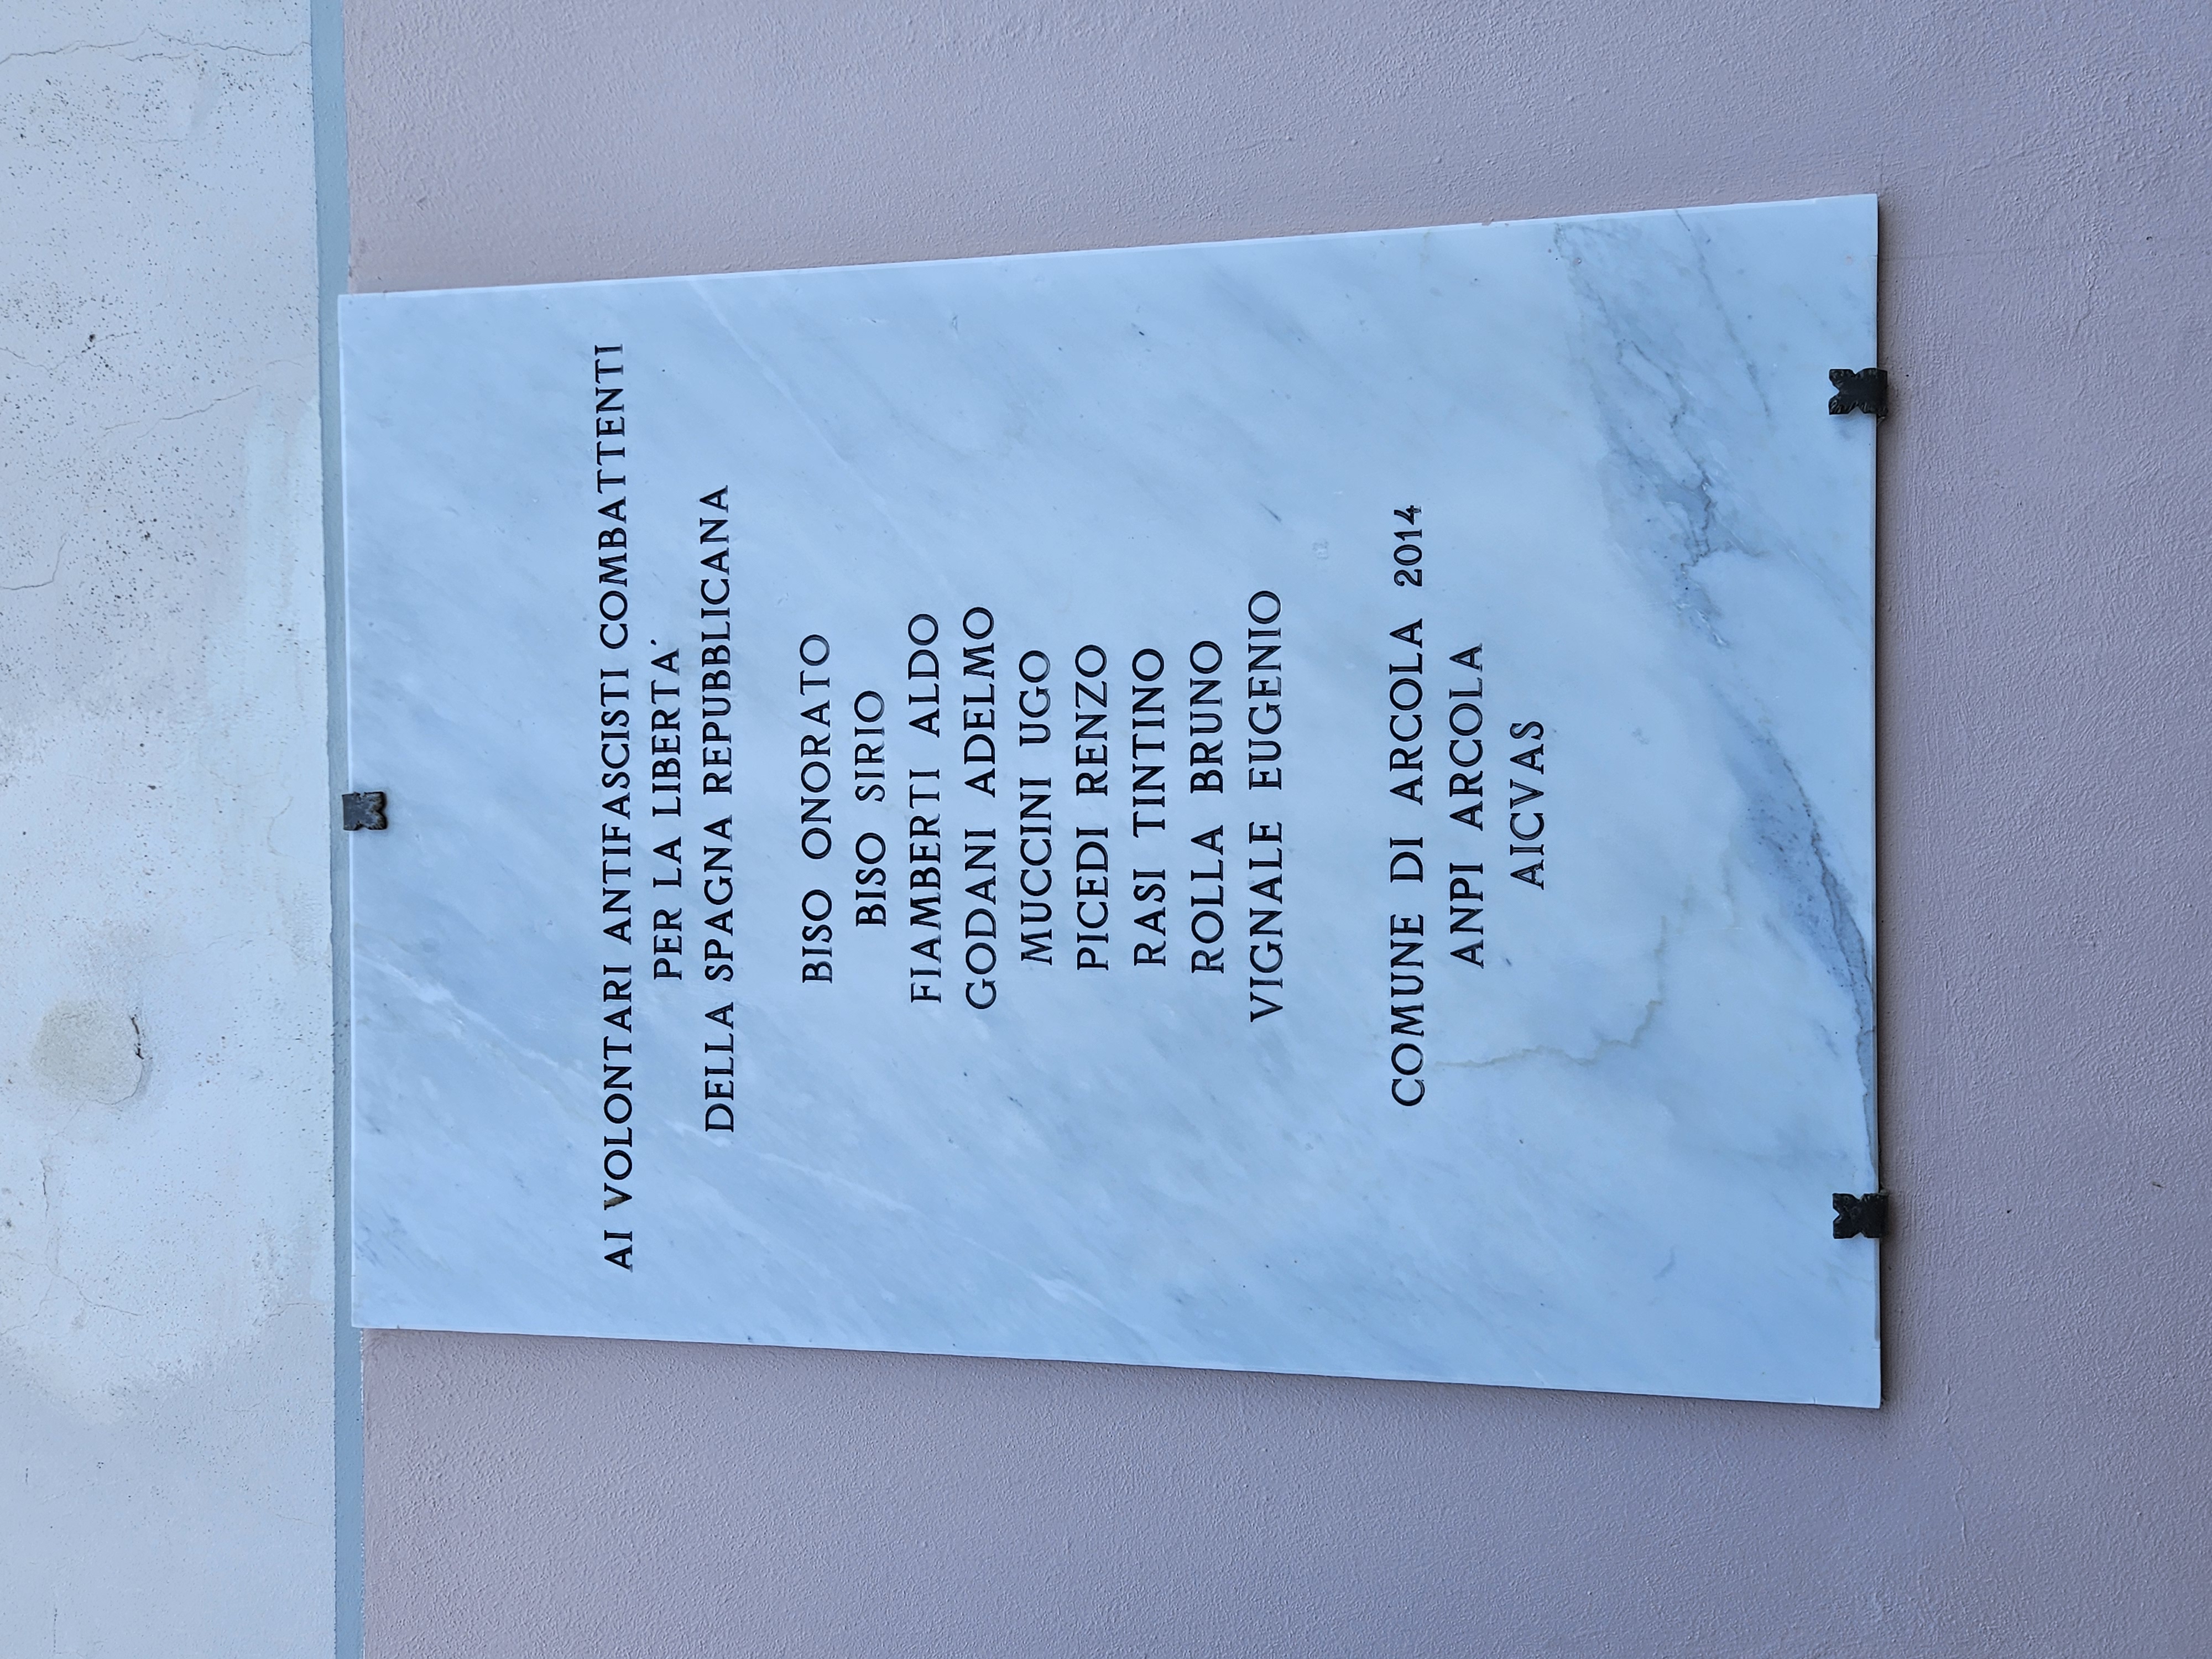 AI VOLONTARI ANTIFASCISTI COMBATTENTI
PER LA LIBERTA´
DELLA SPAGNA REPUBBLICANA
BISO ONORATO
BISO SIRIO
FIAMBERTI ALDO
GODANI ADELMO
MUCCINI UGO
PICEDI RENZO
RASI TINTINO
ROLLA BRUNO
VIGNALE EUGENIO
COMUNE DI ARCOLA 2014
ANPI ARCOLA
AICVAS